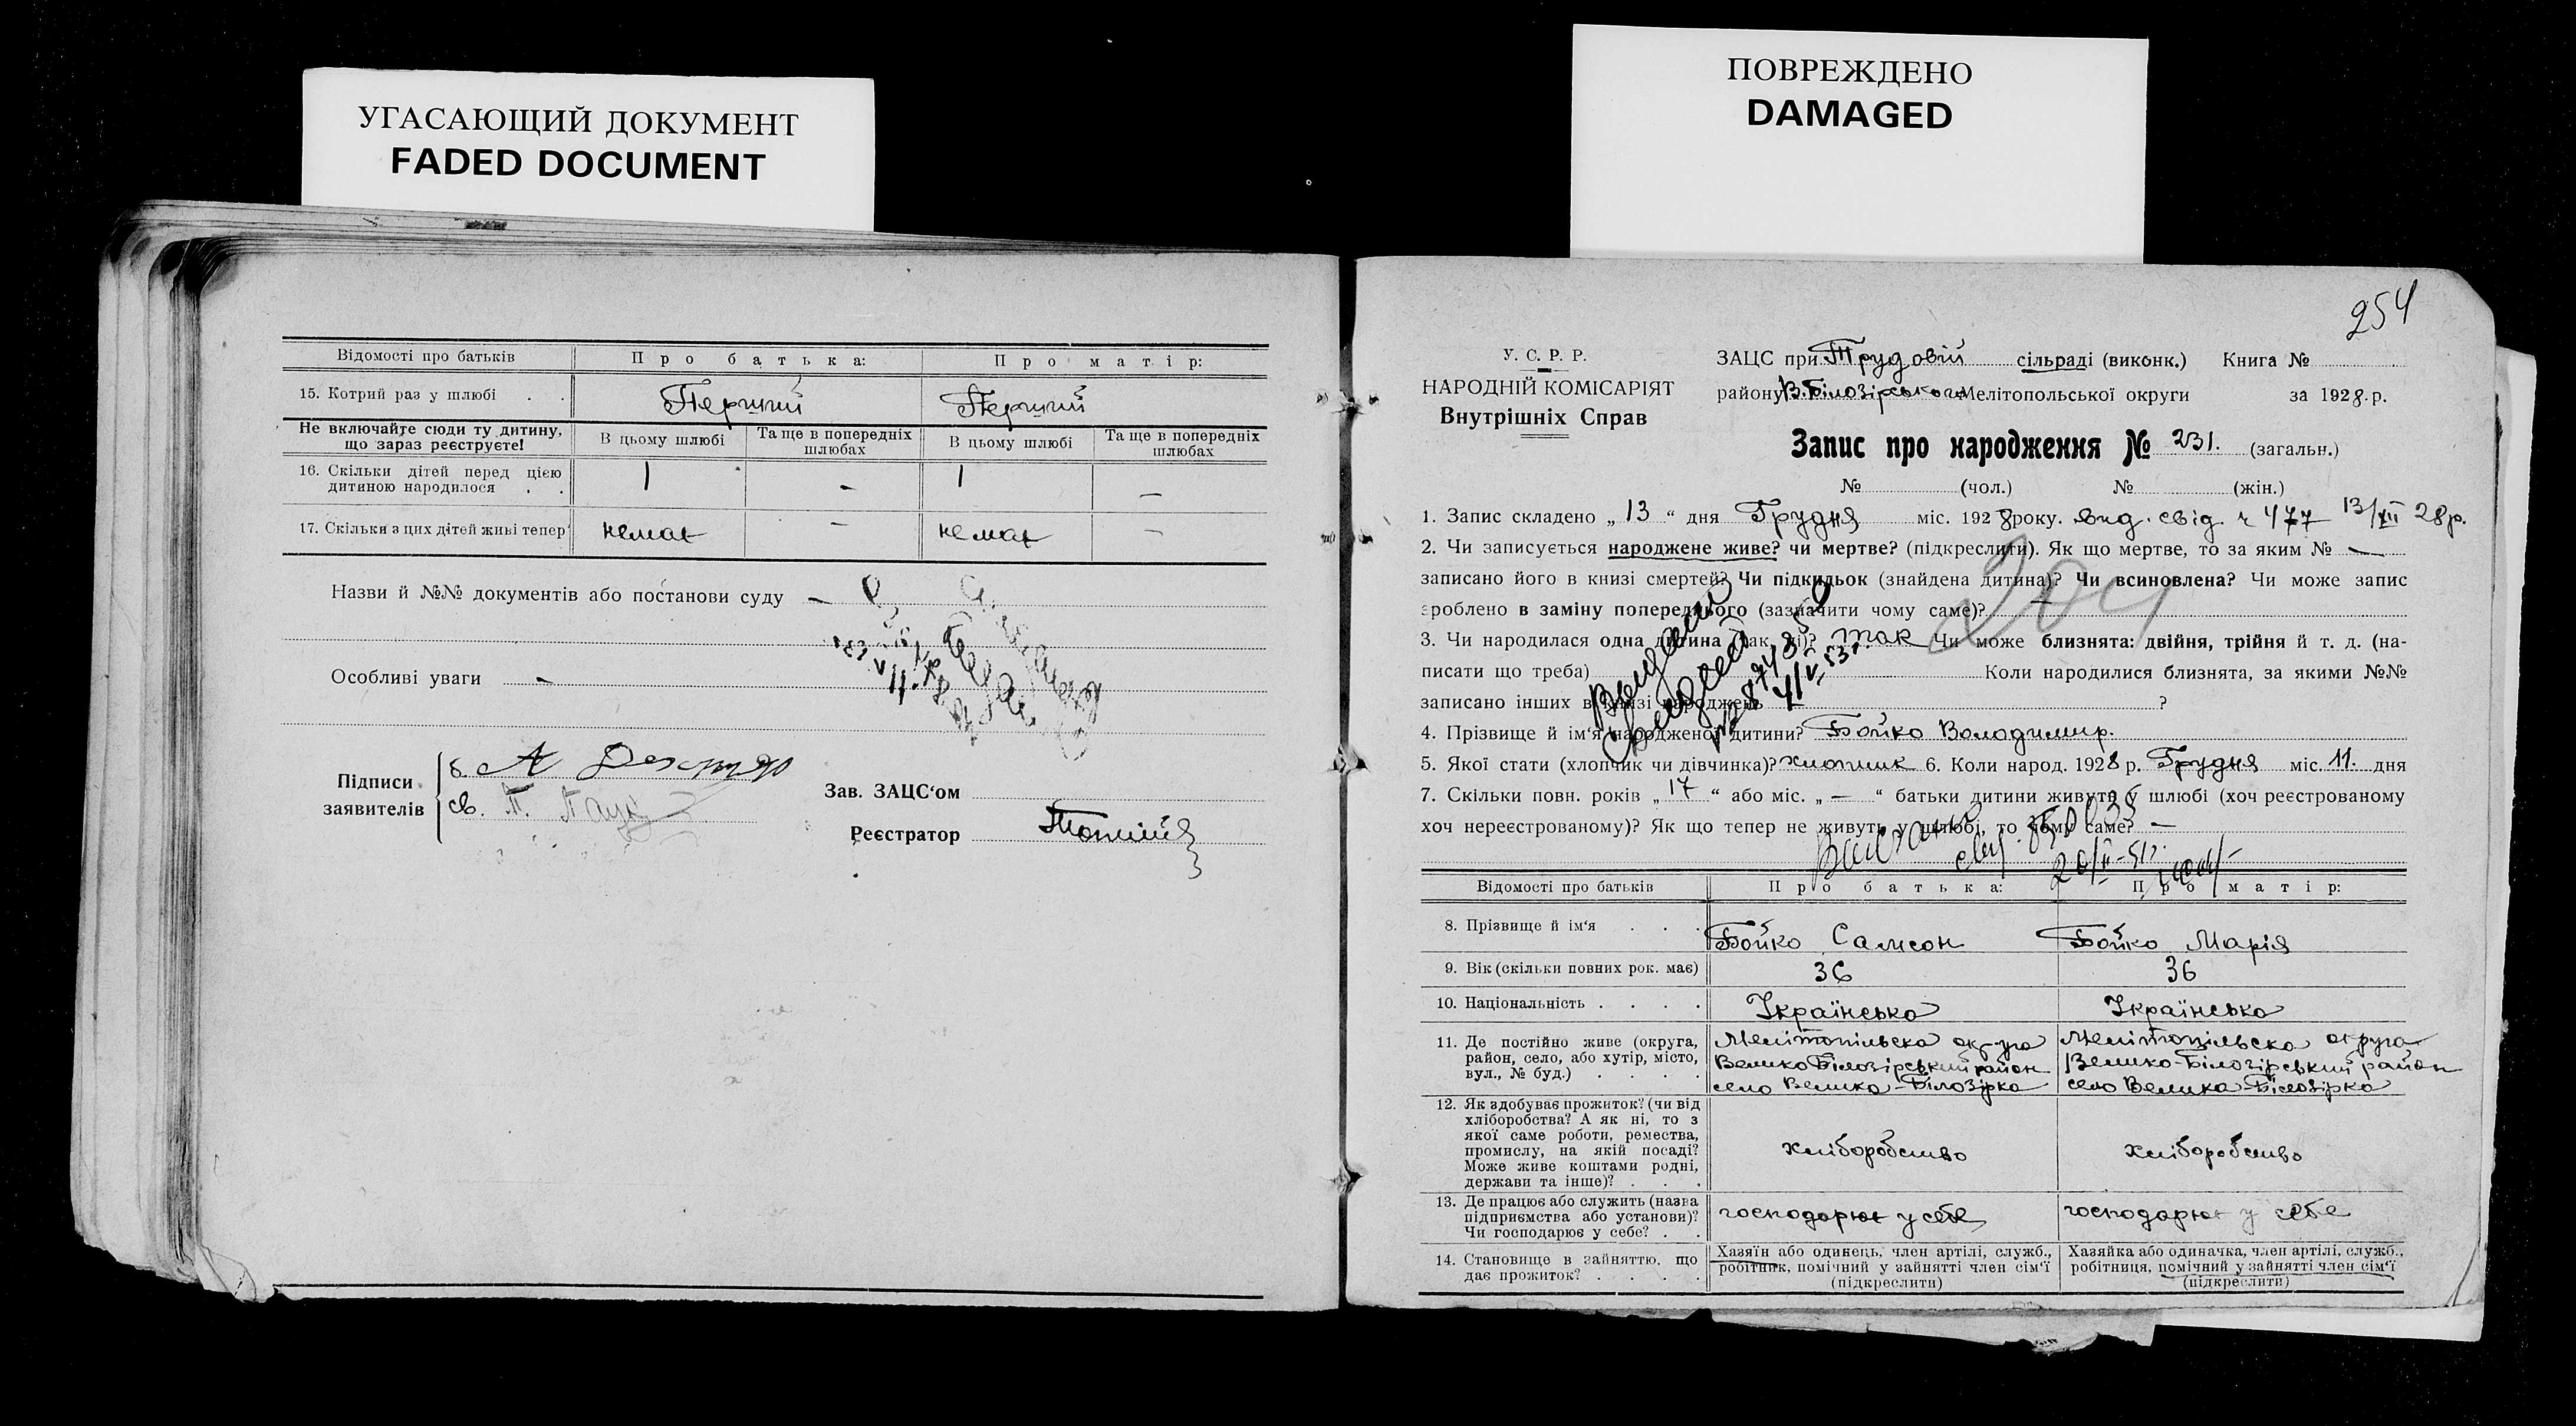 УГАСАЮЩИЙ ДОКУМЕНТ
FADED DOCUMENT
ПОВРЕЖДЕНО
DAMAGED
Відомості про батьків Про батька: Про матір:
15. Котрий раз у шлюбі . . Перший Перший
Не включайте сюди ту дитину, що зараз реєструєте! В цьому шлюбі Та ще в попередніх шлюбах В цьому шлюбі Та ще в попередніх шлюбах
16. Скільки дітей перед цією
дитиною народилося . . 1 — 1 —
17. Скільки з цих дітей живі тепер немає — немає —
Назви й №№ документів або постанови суду —
Особливі уваги —
Підписи
заявителів
б. А
св. П.
Зав. ЗАЦС‘ом
Реєстратор
254
У. С. Р. Р.
НАРОДНІЙ КОМІСАРІЯТ
Внутрішніх Справ
ЗАЦС при Трудовій сільраді (виконк.) Книга №
району В. Білозірського Мелітопольської округи за 1928.р.
Запис про народження № 231. (загальн.)
№ (чол.) № (жін.)
1. Запис складено „ 13 “ дня Грудня міс. 1928 року. вид. свід. ч 477 13/XII 28р.
2. Чи записується народжене живе? чи мертве? (підкреслити). Як що мертве, то за яким № —
записано його в книзі смертей? Чи підкидьок (знайдена дитина)? Чи всиновлена? Чи може запис
зроблено в заміну попереднього (зазначити чому саме)?
3. Чи народилася одна дитина (так, ні)? так Чи може близнята: двійня, трійня й т. д. (на-
писати що треба) Коли народилися близнята, за якими №№
записано інших в книзі народжень ?
4. Прізвище й ім‘я народженої дитини? Бойко Володимир.
5. Якої стати (хлопчик чи дівчинка)? хлопчик 6. Коли народ. 1928 р. Грудня міс. 11. дня
7. Скільки повн. років „ 17 “ або міс. „ — “ батьки дитини живуть у шлюбі (хоч реєстрованому
хоч нереєстрованому)? Як що тепер не живуть у шлюбі, то чому саме? —
Відомості про батьків Про батька: Про матір:
8. Прізвище й ім‘я . . . Бойко Самсон Бойко Марія
9. Вік (скільки повних рок. має) 36 36
10. Національність . . . . Українська Українська
11. Де постійно живе (округа,
район, село, або хутір, місто,
вул., № буд.) . . . .
Мелітопільска округа
Велико Білозірський район
село Велика-Білозірка
Мелітопільска округа
Велико-Білозірський район
село Велика-Білозірка
12. Як здобуває прожиток? (чи від
хліборобства? А як ні, то з
якої саме роботи, ремества,
промислу, на якій посаді?
Може живе коштами родні,
держави та інше)? . . .
хліборобство хліборобство
13. Де працює або служить (назва
підприємства або установи)?
Чи господарює у себе? . .
господарює у себе господарює у себе
14. Становище в зайняттю, що
дає прожиток? . . . .
Хазяїн або одинець, член артілі, служб.,
робітник, помічний у зайнятті член сім‘ї
(підкреслити)
Хазяйка або одиначка, член артілі, служб.,
робітниця, помічний у зайнятті член сім‘ї
(підкреслити)